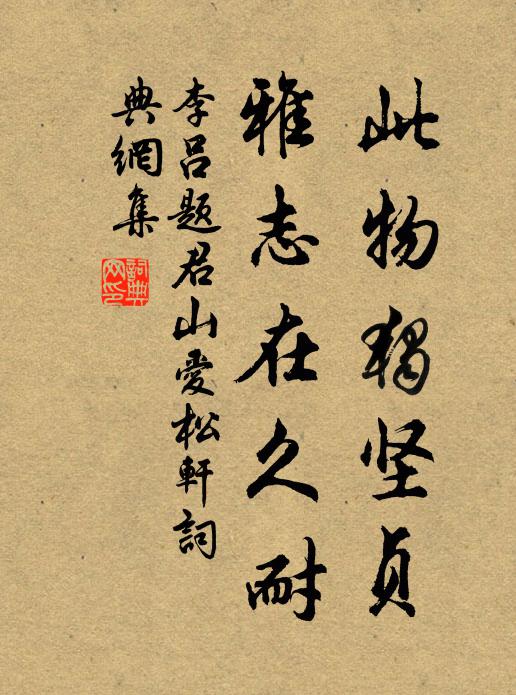 此物独坚贞
雅志在久耐
李吕题君山爱松軒詞
典網集
詞典
网印